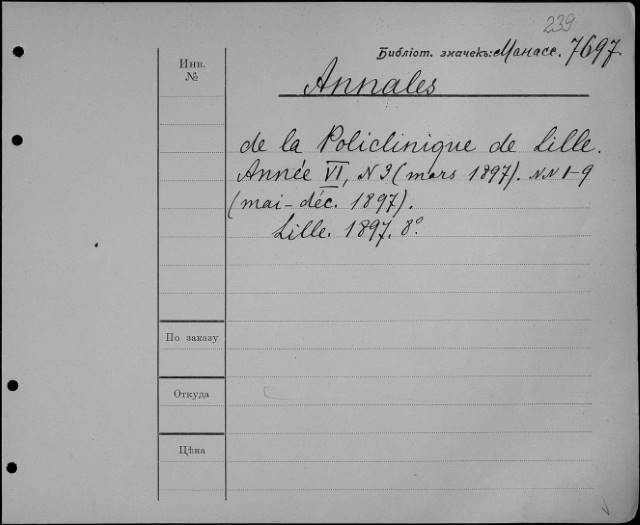 239
Библіот. значекъ: Манасс. 7697.
Инв.
№
Annales
de la Policlinique de Lille.
Année VI, N 3 (mars 1897). NN 1-9
(mai-déc. 1897).
Lille. 1897. 8°.
По заказу
Откуда
Цѣна